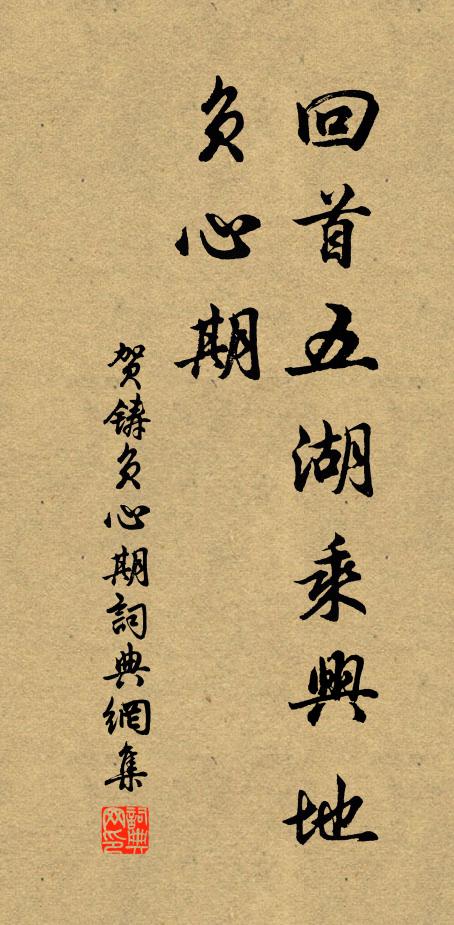 回首五湖乘興地
负心期
贺鑄负心期詞典網集
詞典网印